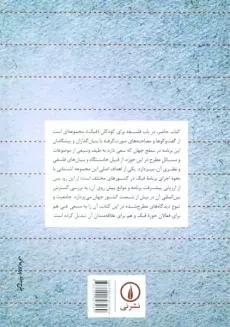 کتاب حاضر، در باب فلسفه برای کودکان (فبک)، مجموعه‌ای است
از گفت‌وگوها و مصاحبه‌های صورت‌گرفته با بنیان‌گذاران و پیشگامان
این برنامه در سطح جهان که سعی دارد به طیف وسیعی از موضوعات
و مسائل مطرح در این حوزه، از قبیل خاستگاه و بنیان‌های فلسفی
و نظری آن، بپردازد. یکی از اهداف اصلی این مجموعه آشنایی با
نحوه اجرای برنامه فبک در کشورهای مختلف است؛ از این رو، پس
از ارزیابی پیشرفت برنامه و موانع پیش روی آن، به بررسی گسترش
بین‌المللی آن در بیش از شصت کشور جهان می‌پردازد. جامعیت و
تنوع دیدگاه‌های مطرح‌شده در این کتاب آن را به منبعی غنی هم
برای فعالان حوزه فبک و هم برای علاقه‌مندان آن تبدیل کرده است.
نشر نی